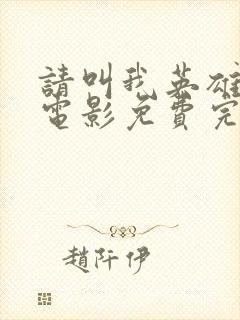 請叫我英雄
電影免費完
趙阡伊